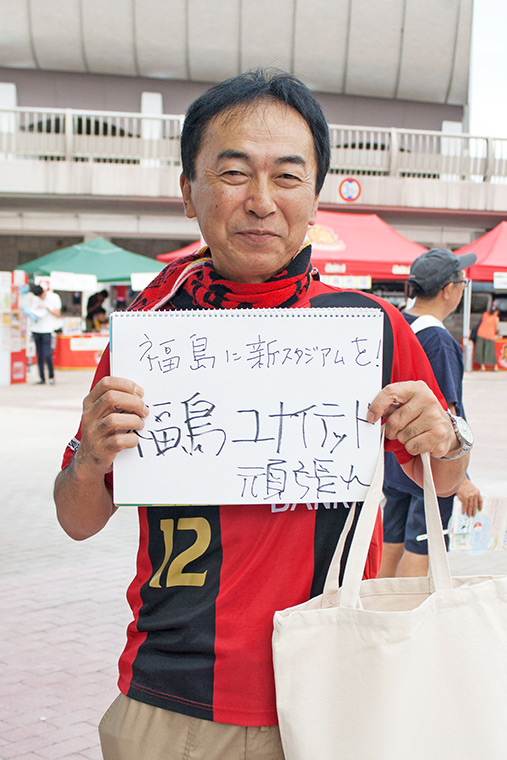 福島に新スタジアムを!
福島ユナイテッド
頑張れ
BANK
12